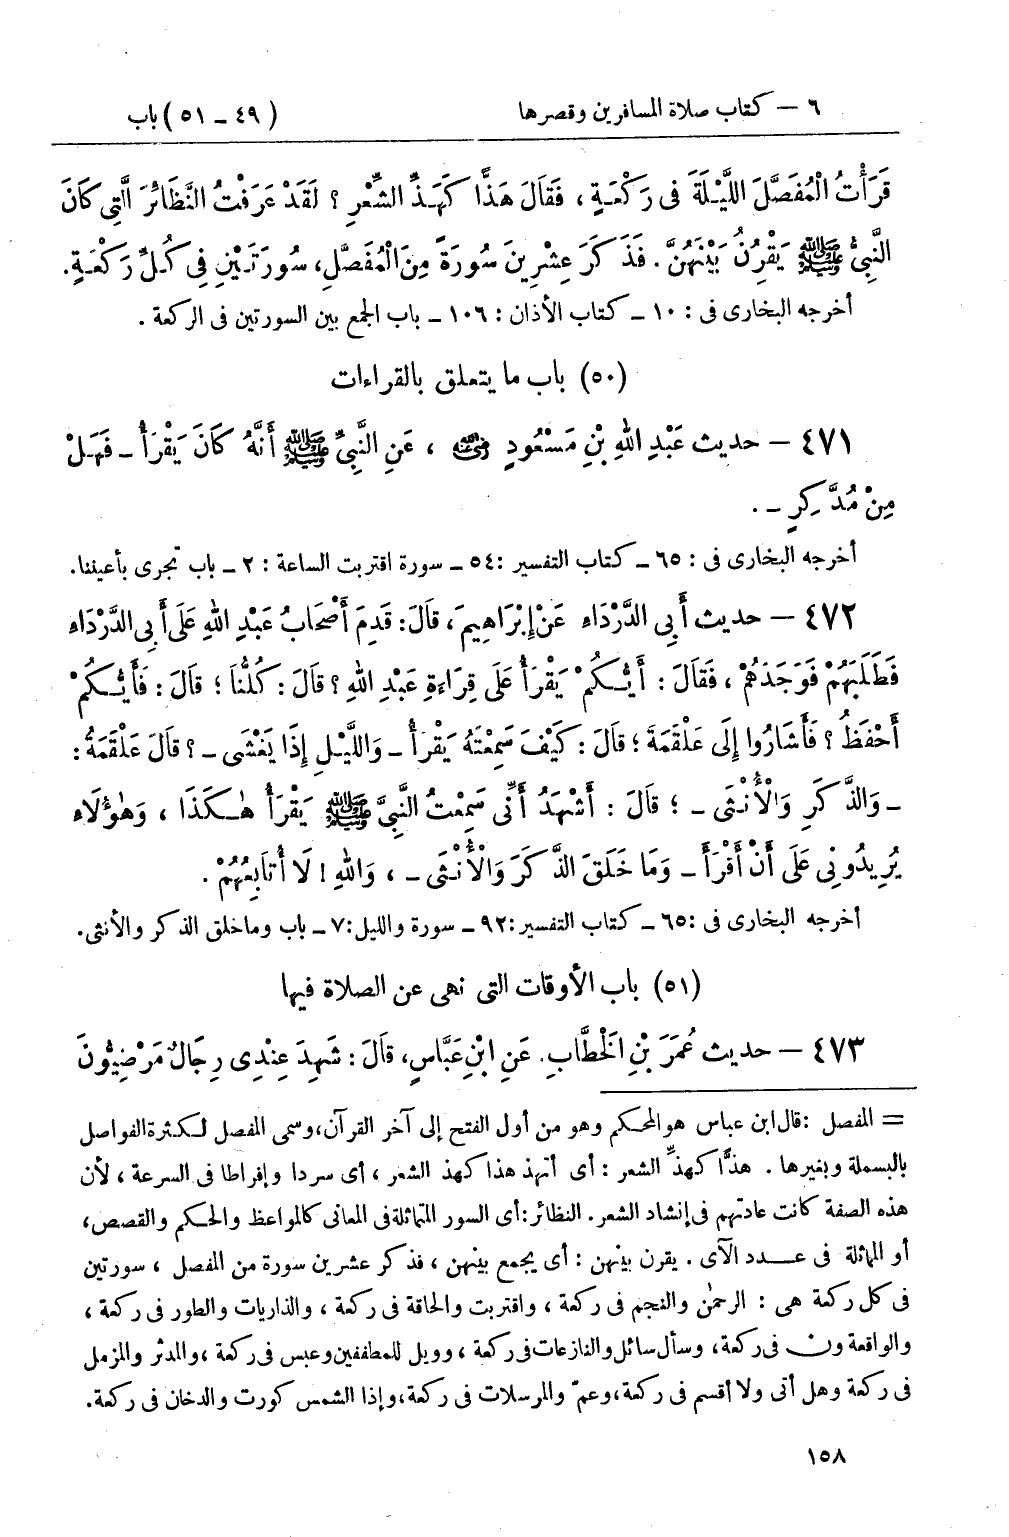 ٦ – كتاب صلاة المسافرين وقصرها (٤٩ – ٥١) باب
قَرَأْتُ الْمُفَصَّلَ اللَّيْلَةَ فِى رَكْعَةٍ ، فَقَالَ هَذًّا كَهَذِّ الشِّعْرِ ؟ لَقَدْ عَرَفْتُ النَّظَائِرَ الَّتِى كَانَ
النَّبِىُّ ﷺ يَقْرُنُ بَيْنَهُنَّ . فَذَكَرَ عِشْرِينَ سُورَةً مِنَ الْمُفَصَّلِ، سُورَتَيْنِ فِى كُلِّ رَكْعَةٍ.
أخرجه البخارى فى : ١٠ – كتاب الأذان : ١٠٦ – باب الجمع بين السورتين فى الركعة .
(٥٠) باب ما يتعلق بالقراءات
٤٧١ – حديث عَبْدِ اللهِ بْنِ مَسْعُودٍ رضي الله عنه ، عَنِ النَّبِىِّ ﷺ أَنَّهُ كَانَ يَقْرَأُ – فَهَلْ
مِنْ مُدَّكِرٍ – .
أخرجه البخارى فى : ٦٥ – كتاب التفسير : ٥٤ – سورة اقتربت الساعة : ٢ – باب تجرى بأعيننا.
٤٧٢ – حديث أَبِى الدَّرْدَاءِ عَنْ إِبْرَاهِيمَ ، قَالَ : قَدِمَ أَصْحَابُ عَبْدِ اللهِ عَلَى أَبِى الدَّرْدَاءِ
فَطَلَبَهُمْ فَوَجَدَهُمْ ، فَقَالَ : أَيُّكُمْ يَقْرَأُ عَلَى قِرَاءَةِ عَبْدِ اللهِ ؟ قَالَ : كُلُّنَا ؛ قَالَ : فَأَيُّكُمْ
أَحْفَظُ ؟ فَأَشَارُوا إِلَى عَلْقَمَةَ ؛ قَالَ : كَيْفَ سَمِعْتَهُ يَقْرَأُ – وَاللَّيْلِ إِذَا يَغْشَى – ؟ قَالَ عَلْقَمَةُ :
– وَالذَّكَرِ وَالْأُنْثَى – ؛ قَالَ : أَشْهَدُ أَنِّى سَمِعْتُ النَّبِىَّ ﷺ يَقْرَأُ هٰكَذَا ، وَهٰؤُلَاءِ
يُرِيدُونِى عَلَى أَنْ أَقْرَأَ – وَمَا خَلَقَ الذَّكَرَ وَالْأُنْثَى – ، وَاللهِ ! لَا أُتَابِعُهُمْ .
أخرجه البخارى فى : ٦٥ – كتاب التفسير: ٩٢ – سورة والليل: ٧ – باب وما خلق الذكر والأنثى.
(٥١) باب الأوقات التى نهى عن الصلاة فيها
٤٧٣ – حديث عُمَرَ بْنِ الْخَطَّابِ. عَنِ ابْنِ عَبَّاسٍ، قَالَ : شَهِدَ عِنْدِى رِجَالٌ مَرْضِيُّونَ
= المفصل : قال ابن عباس هو المحكم وهو من أول الفتح إلى آخر القرآن، وسمى المفصل لكثرة الفواصل
بالبسملة وبغيرها . هذًّا كهذِّ الشعر : أى أتهذ هذا كهذ الشعر ، أى سردا وإفراطا فى السرعة ، لأن
هذه الصفة كانت عادتهم فى إنشاد الشعر. النظائر: أى السور المتماثلة فى المعانى كالمواعظ والحكم والقصص،
أو المماثلة فى عدد الآى . يقرن بينهن : أى يجمع بينهن ، فذكر عشرين سورة من المفصل ، سورتين
فى كل ركعة هى : الرحمٰن والنجم فى ركعة ، واقتربت والحاقة فى ركعة ، والذاريات والطور فى ركعة ،
والواقعة ون فى ركعة، وسأل سائل والنازعات فى ركعة ، وويل للمطففين وعبس فى ركعة ، والمدثر والمزمل
فى ركعة وهل أتى ولا أقسم فى ركعة، وعمّ والمرسلات فى ركعة، وإذا الشمس كورت والدخان فى ركعة.
١٥٨